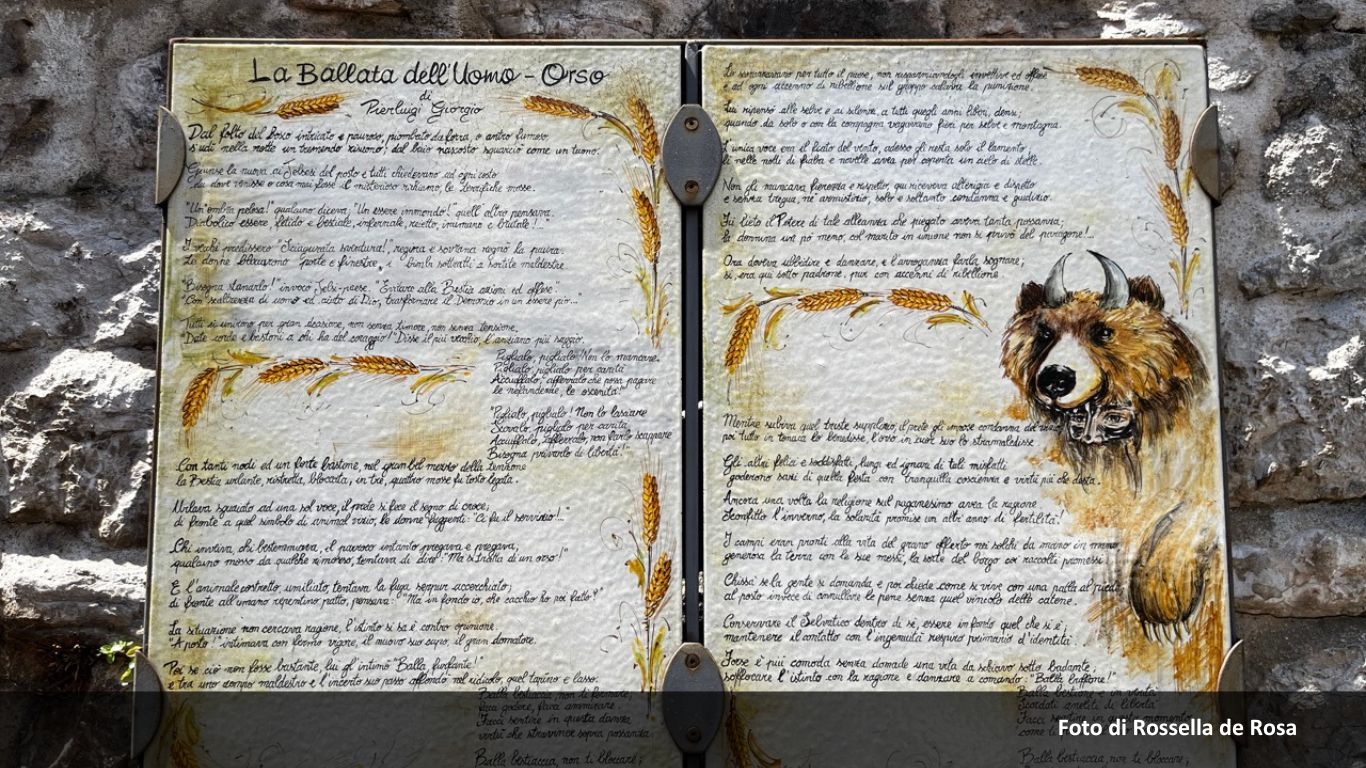 La Ballata dell'Uomo - Orso
di
Pierluigi Giorgio
Dal folto del bosco intricato e pauroso, piombato da forra, o antro fumoso
s'udì nella notte un tremendo risuono; dal buio nascosto squarciò come un tuono.
Giunse la nuova ai Jelsesi del posto e tutti chiedevano ad ogni costo
da dove venisse o cosa mai fosse il misterioso richiamo, le terrifiche mosse.
"Un'ombra pelosa!" qualcuno diceva; "Un essere immondo!" quell'altro pensava.
Diabolico essere, fetido e bestiale, infernale, reietto, inumano e brutale!..."
I vecchi predissero "Sciagurata sventura!", regina e sovrana regnò la paura.
Le donne bloccarono porte e finestre, i bimbi sottratti a sortite maldestre
"Bisogna stanarlo!" invocò Jelsi-paese. "Evitare alla Bestia azioni ed offese".
"Con scaltrezza di uomo ed aiuto di Dio, trasformare il Demonio in un essere pio..."
Tutti si unirono per gran occasione, non senza timore, non senza tensione.
"Date corde e bastoni a chi ha del coraggio!" Disse il più vecchio, l'anziano più saggio.
Piglialo, piglialo! Non lo mancare.
Piglialo, piglialo per carità
Acciuffalo, afferralo che possa pagare
le nefandezze, le oscenità!
"Piglialo, piglialo! Non lo lasciare
Scovalo, piglialo per carità
Acciuffalo, afferralo, non farlo scappare
Bisogna privarlo di libertà".
Con tanti nodi ed un forte bastone, nel gran bel mezzo della tenzone
la Bestia urlante, ristretta, bloccata, in tre, quattro mosse fu tosto legata.
Urlava sguaiato ad una sol voce, il prete si fece il segno di croce;
di fronte a quel simbolo di animal vizio, le donne fuggenti: "Ci fu il servizio!..."
Chi inveiva, chi bestemmiava, il parroco intanto pregava e pregava,
qualcuno mosso da qualche rimorso, tentava di dire: "Ma si tratta di un orso!"
E l'animale costretto, umiliato, tentava la fuga seppur accerchiato;
di fronte all'umano repentino ratto, pensava: "Ma in fondo io, che cacchio ho poi fatto?"
La situazione non cercava ragione, l'istinto si sa è contro opinione.
"A posto" intimava con fermo vigore, il nuovo suo capo, il gran domatore.
Poi se ciò non fosse bastante, lui gl'intimò "Balla, furfante!"
e tra uno zompo maldestro e l'incerto suo passo affondò nel ridicolo, quel tapino e lasso.
Balla bestiaccia, non ti fermare;
facci godere, facci ammirare.
Facci sentire in questa danza
virtù che stravince sopra possanza.
Balla bestiaccia, non ti bloccare;
Lo scarrozzarono per tutto il paese, non risparmiandogli invettive ed offese
e ad ogni accenno di ribellione sul groppo saliva la punizione.
Lui ripensò alle selve e ai silenzi, a tutti quegli anni liberi, densi;
quando da solo o con la compagna vagavano fieri per selve e montagna.
L'unica voce era il fiato del vento, adesso gli resta solo il lamento,
lì nelle notti di fiaba e novelle aveva per coperta un cielo di stelle.
Non gli mancava fierezza e rispetto, qui riceveva alterigia e dispetto
e senza tregua, né armistizio, solo e soltanto condanna e giudizio.
Fu lieto il Potere di tale alleanza che piegato aveva tanta possanza;
la donnina un pò meno, col marito in unione non si privò del paragone!...
Ora doveva ubbidire e danzare, e l'arroganza farla sognare;
sì, era qui sotto padrone, pur con accenni di ribellione
Mentre subiva quel triste supplizio, il prete gli impose condanna del vizio;
poi tutto in tonaca lo benedisse, l'orso in cuor suo lo stramaledisse.
Gli altri felici e soddisfatti, lungi ed ignari di tali misfatti
goderono sazi di quella festa con tranquilla coscienza e virtù più che desta.
Ancora una volta la religione sul paganesimo aveva la ragione
Sconfitto l'inverno, la solarità promise un altr'anno di fertilità!
I campi eran pronti alla vita del grano offerto nei solchi da mano in mano
generosa la terra con le sue messi, la sorte del borgo coi raccolti promessi.
Chissà se la gente si domanda e poi chiede come si vive con una palla al piede,
al posto invece di annullare le pene senza quel vincolo delle catene.
Conservare il Selvatico dentro di sé, essere in fondo quel che si è;
mantenere il contatto con l'ingenuità respiro primario d'identità.
Forse è più comoda senza domande una vita da schiavo sotto badante;
soffocare l'istinto con la ragione e danzare a comando: "Balla buffone!"
Balla bestione e in verità
Scordati aneliti di libertà
Facci sentire in questo momento
Balla bestiaccia, non ti bloccare;
Foto di Rossella de Rosa